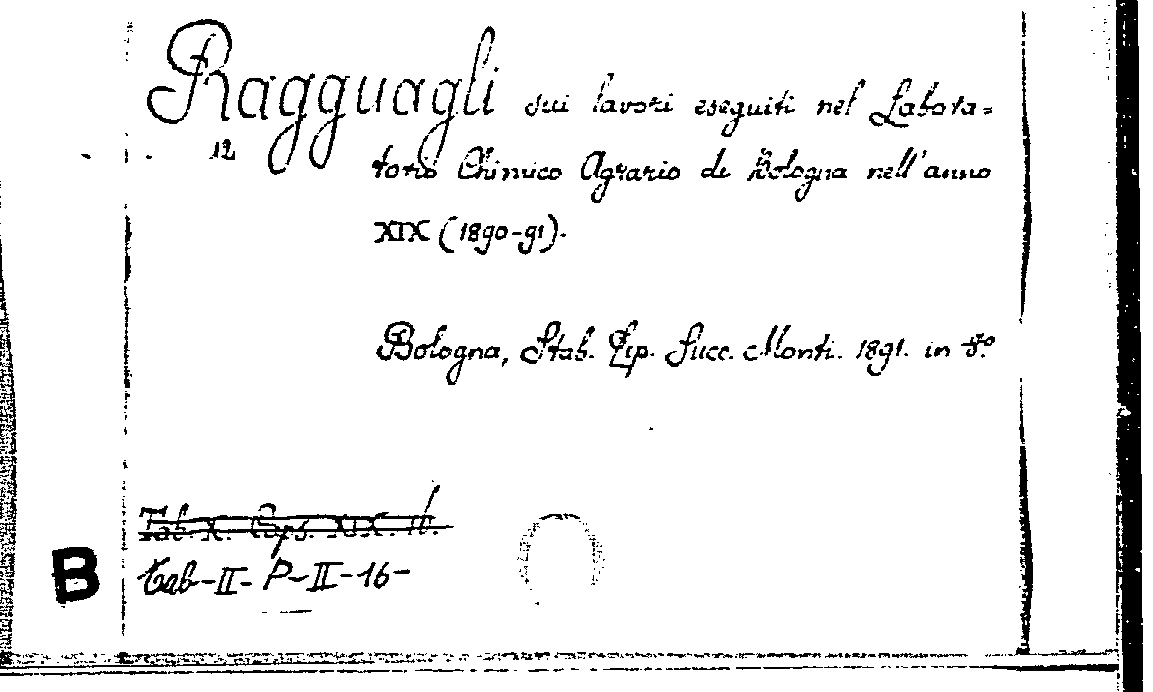 Ragguagli sui lavori eseguiti nel Labora=
12
torio Chimico Agrario di Bologna nell'anno
XIX (1890-91).
Bologna, Stab. Tip. Succ. Monti. 1891. in 8.º
Tab. X. Caps. XIX.
B
Tab-II- P-II-16-